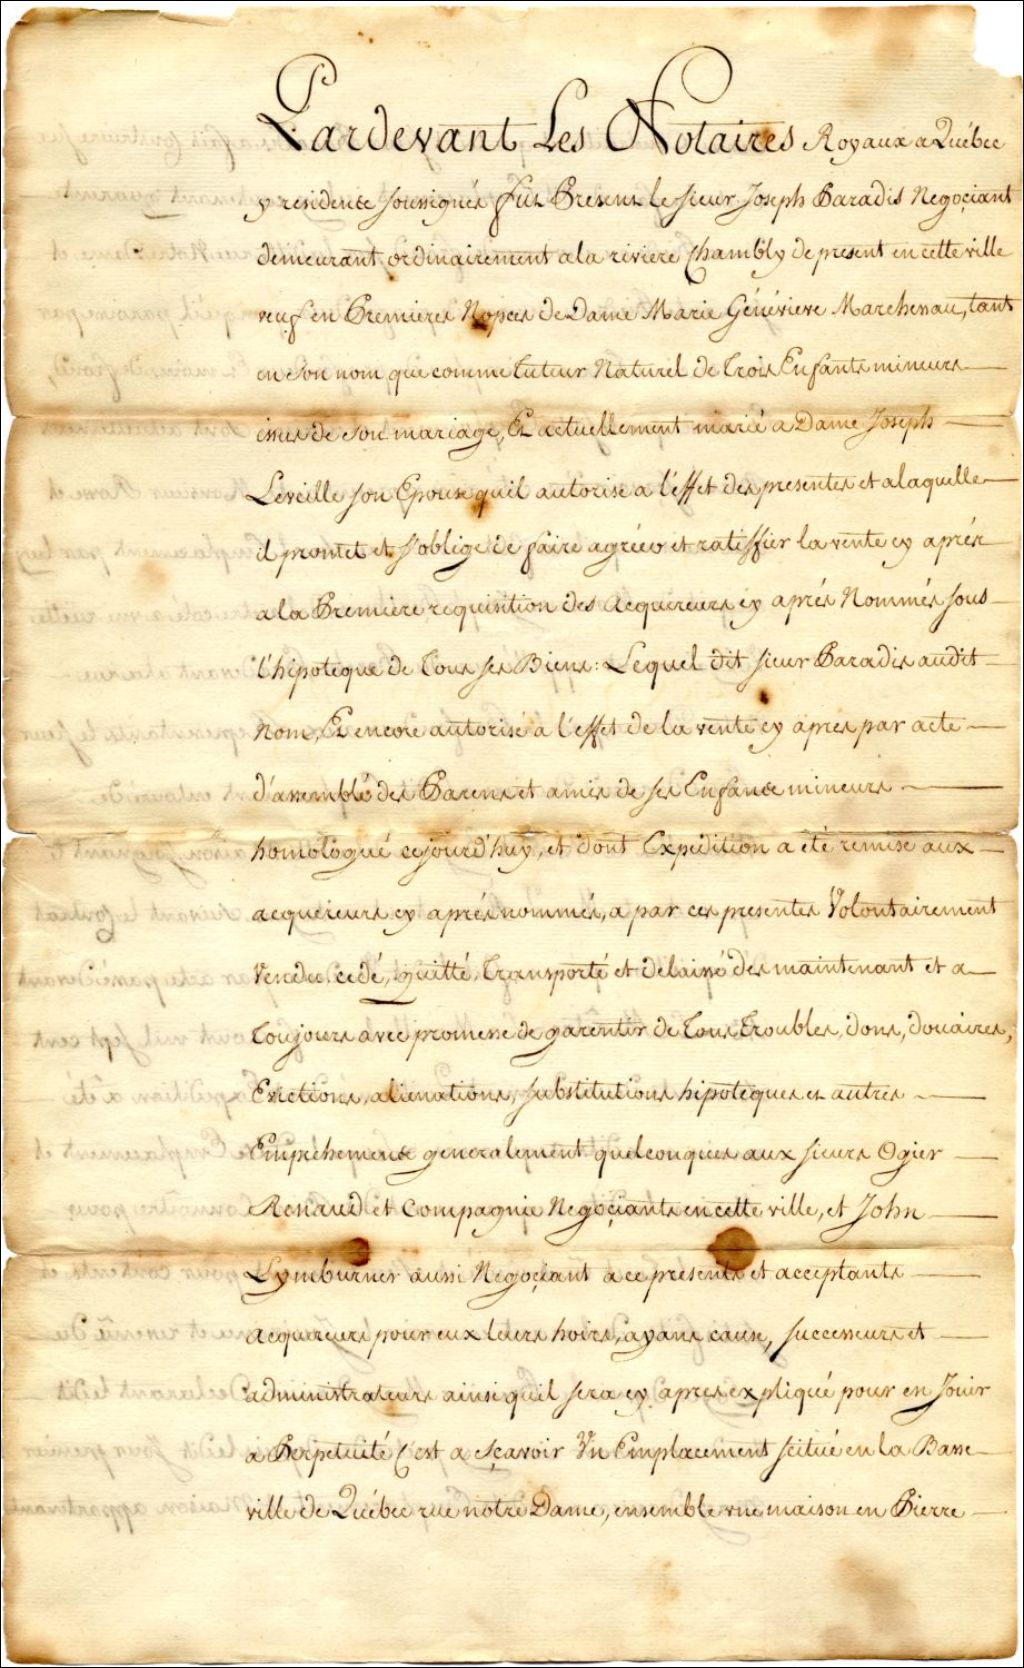 Pardevant Les Notaires Royaux a Québec
y residents soussignés fut Present le sieur Joseph Paradis Negoçiant
demeurant ordinairement a la riviere Chambly de present en cette ville
veuf en Premieres Nopces de Dame Marie Généviere Marchenau, tant
en son nom que comme tuteur Naturel de trois Enfants mineurs
issus de son mariage, Et actuellement marié a Dame Joseph
Leveille son Epouse qu'il autorise a l'effet des presentes et a laquelle
il promet et s'oblige de faire agréer et ratiffier la vente cy aprés
a la Premiere requisition des Acquereurs cy aprés Nommés sous
l'hipoteque de tous ses Biens: Lequel dit sieur Paradis audit
Nom, Et encore autorisé a l'effet de la vente cy apres par acte
d'assemblé des Parens et amis de ses Enfants mineurs
homologué cejourd'huy, et dont Expedition a été remise aux
acquereurs cy aprés nommés, a par ces presentes Volontairement
Vendu, cedé, quitté, transporté et delaissé des maintenant et a
toujours avec promesse de garentir de tous troubles, dons, douaires,
Evictions, alienations, substitutions hipoteques et autres
Empechements generalement quelconques aux sieurs Ogier
Renaud et Compagnie Negoçiants en cette ville, et John
Lymburner aussi Negoçiant a ce presents et acceptants
Acquereurs pour eux leurs hoirs, ayans cause, successeurs et
administrateurs ainsi qu'il sera cy apres expliqué pour en Jouir
a Perpetuité C'est a sçavoir Un Emplacement scitué en la Basse
ville de Québec rue notre Dame, ensemble une maison en Pierre